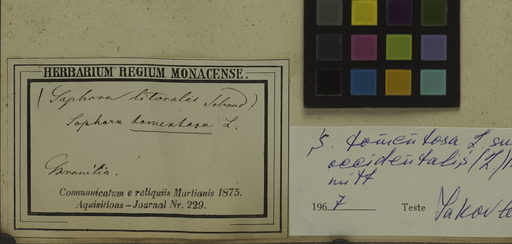 HERBARIUM REGIUM MONACENSE.
(Sophora litoralis Schrad)
Sophora tomentosa L.
Brasilia.
Communicatum e reliquiis Martianis 1875.
Aquisitions - Journal Nr. 229.
S. tomentosa L. su
occidentalis (L)
mitt
1967 Teste Yakovle